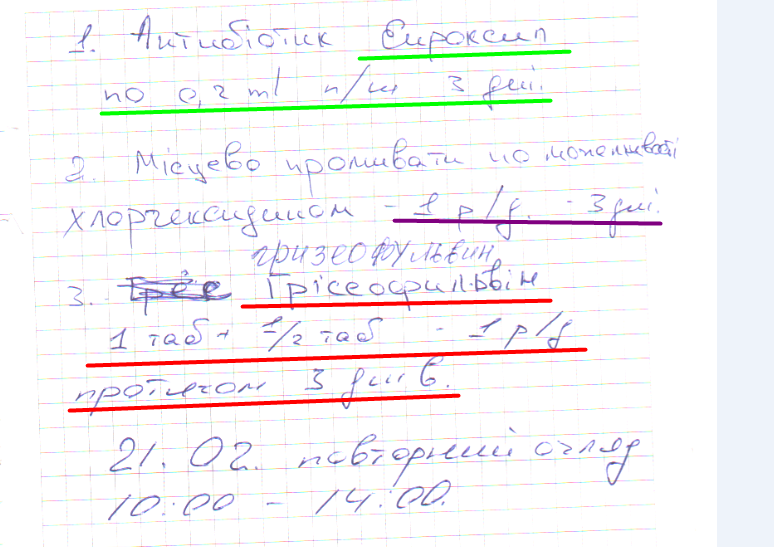 1. Антибіотик Енроксил
по 0,2 ml п/ш 3 дні.
2. Місцево промивати по можливості
хлоргексидином - 1 р/д. - 3 дні.
гризеофульвин
3. Грісеофульвін
1 таб + 1/2 таб - 1 р/д
протягом 3 днів.
21.02. повторний огляд
10:00 - 14:00.